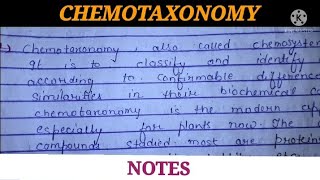 CHEMOTAXONOMY
Chemotaxonomy, also called chemosyste
It is to classify and identify
according to confirmable difference
similarities in their biochemical co
chemotaxonomy is the modern
especially for plants now. The
compounds studied most are protein
NOTES